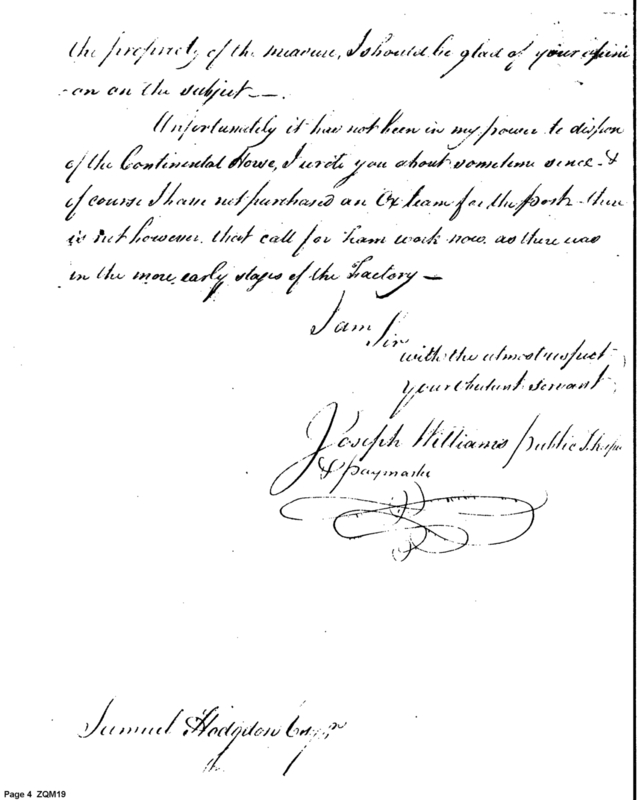 the propriety of the measure, I should be glad of your opini
-on on the subject —.
Unfortunately it has not been in my power to dispose
of the Continental Horse, I wrote you about sometime since - &
of course I have not purchased an Ox team for the post - there
is not however that call for team work now as there was
in the more early stages of the Factory —
I am Sir
with the utmost respect
your obedient servant
Joseph Williams public
& paymaster
Samuel Hodgdon Esqr
Page 4 ZQM19